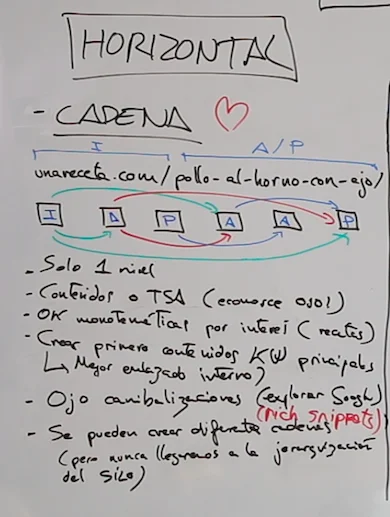 HORIZONTAL
- CADENA
I A/P
unareceta.com/pollo-al-horno-con-ajo/
I A P A A P
- Solo 1 nivel
- Contenidos o TSA (economce ojo!)
- OK monotemáticas por interés (recetas)
- Crear primero contenidos KW principales
↳ Mejor enlazado interno)
- Ojo canibalizaciones (explorar Google)
(rich snippets)
- Se pueden crear diferente cadenas
(pero nunca llegaremos a la jerarquización
del SILO)